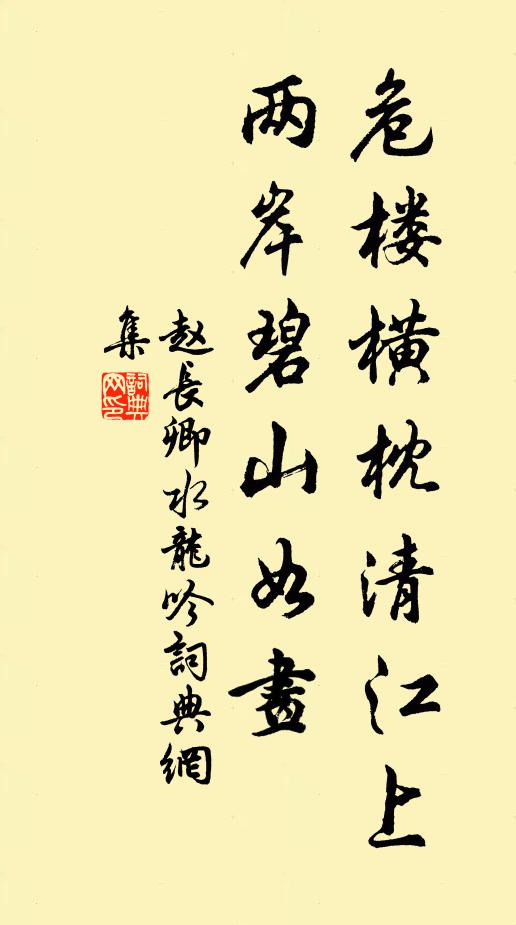 危楼横枕清江上
两岸碧山如畫
赵長卿水龍吟詞典網
集
詞典
网印